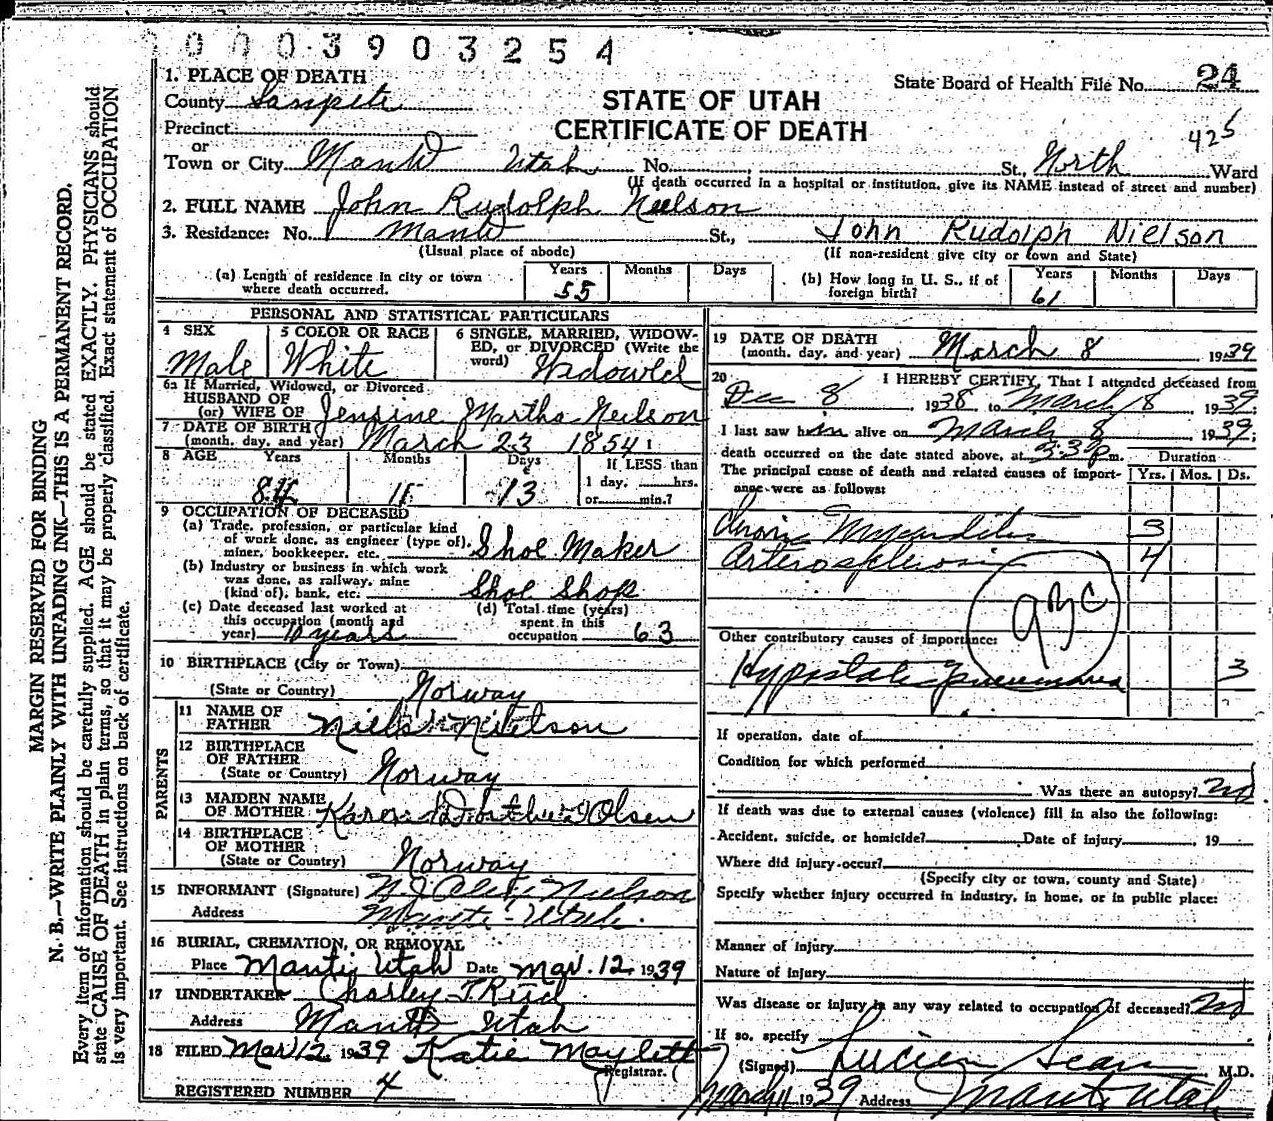 0003903254
1. PLACE OF DEATH
State Board of Health File No. 24
County Sanpete
STATE OF UTAH
CERTIFICATE OF DEATH
425
Precinct
or
Town or City Manti Utah No. St., North Ward
(If death occurred in a hospital or institution, give its NAME instead of street and number)
2. FULL NAME John Rudolph Neilson
3. Residence: No. Manti St., John Rudolph Nielson
(Usual place of abode) (If non-resident give city or town and State)
(a) Length of residence in city or town where death occurred. Years 55 Months Days
(b) How long in U. S., if of foreign birth? Years 61 Months Days
PERSONAL AND STATISTICAL PARTICULARS
4 SEX Male
5 COLOR OR RACE White
6 SINGLE, MARRIED, WIDOW-
ED, or DIVORCED (Write the
word) Widowed
6a If Married, Widowed, or Divorced
HUSBAND OF
(or) WIFE OF Jensine Martha Neilson
7 DATE OF BIRTH
(month, day, and year) March 23 1854
8 AGE Years 84 Months 11 Days 13 If LESS than
1 day, hrs.
or min.?
9 OCCUPATION OF DECEASED
(a) Trade, profession, or particular kind
of work done, as engineer (type of),
miner, bookkeeper, etc. Shoe Maker
(b) Industry or business in which work
was done, as railway, mine
(kind of), bank, etc. Shoe Shop
(c) Date deceased last worked at
this occupation (month and
year) 10 years
(d) Total time (years)
spent in this
occupation 63
10 BIRTHPLACE (City or Town)
(State or Country) Norway
PARENTS
11 NAME OF
FATHER Niels Neilson
12 BIRTHPLACE
OF FATHER
(State or Country) Norway
13 MAIDEN NAME
OF MOTHER Karen Olsen
14 BIRTHPLACE
OF MOTHER
(State or Country) Norway
15 INFORMANT (Signature) Nielson
Address Manti - Utah.
16 BURIAL, CREMATION, OR REMOVAL
Place Manti, Utah Date Mar. 12, 1939
17 UNDERTAKER Charley
Address Manti Utah
18 FILED Mar 12 1939 Katie Maylett
Registrar.
REGISTERED NUMBER 4
19 DATE OF DEATH
(month, day, and year) March 8 1939
20 I HEREBY CERTIFY, That I attended deceased from
Dec 8, 1938 to March 8, 1939;
I last saw him alive on March 8, 1939;
death occurred on the date stated above, at 3:33 p.m. Duration
The principal cause of death and related causes of import-
ance were as follows: Yrs. Mos. Ds.
Chronic Myocarditis 3
Arteriosclerosis 4
93c
Other contributory causes of importance:
Hypostatic pneumonia 3
If operation, date of
Condition for which performed
Was there an autopsy? no
If death was due to external causes (violence) fill in also the following:
Accident, suicide, or homicide? Date of injury , 19
Where did injury occur?
(Specify city or town, county and State)
Specify whether injury occurred in industry, in home, or in public place:
Manner of injury
Nature of injury
Was disease or injury in any way related to occupation of deceased? no
If so, specify
(Signed) Lucien Sears, M.D.
March 11 1939 Address Manti, Utah
MARGIN RESERVED FOR BINDING
N. B.—WRITE PLAINLY WITH UNFADING INK—THIS IS A PERMANENT RECORD.
Every item of information should be carefully supplied. AGE should be stated EXACTLY. PHYSICIANS should
state CAUSE OF DEATH in plain terms, so that it may be properly classified. Exact statement of OCCUPATION
is very important. See instructions on back of certificate.